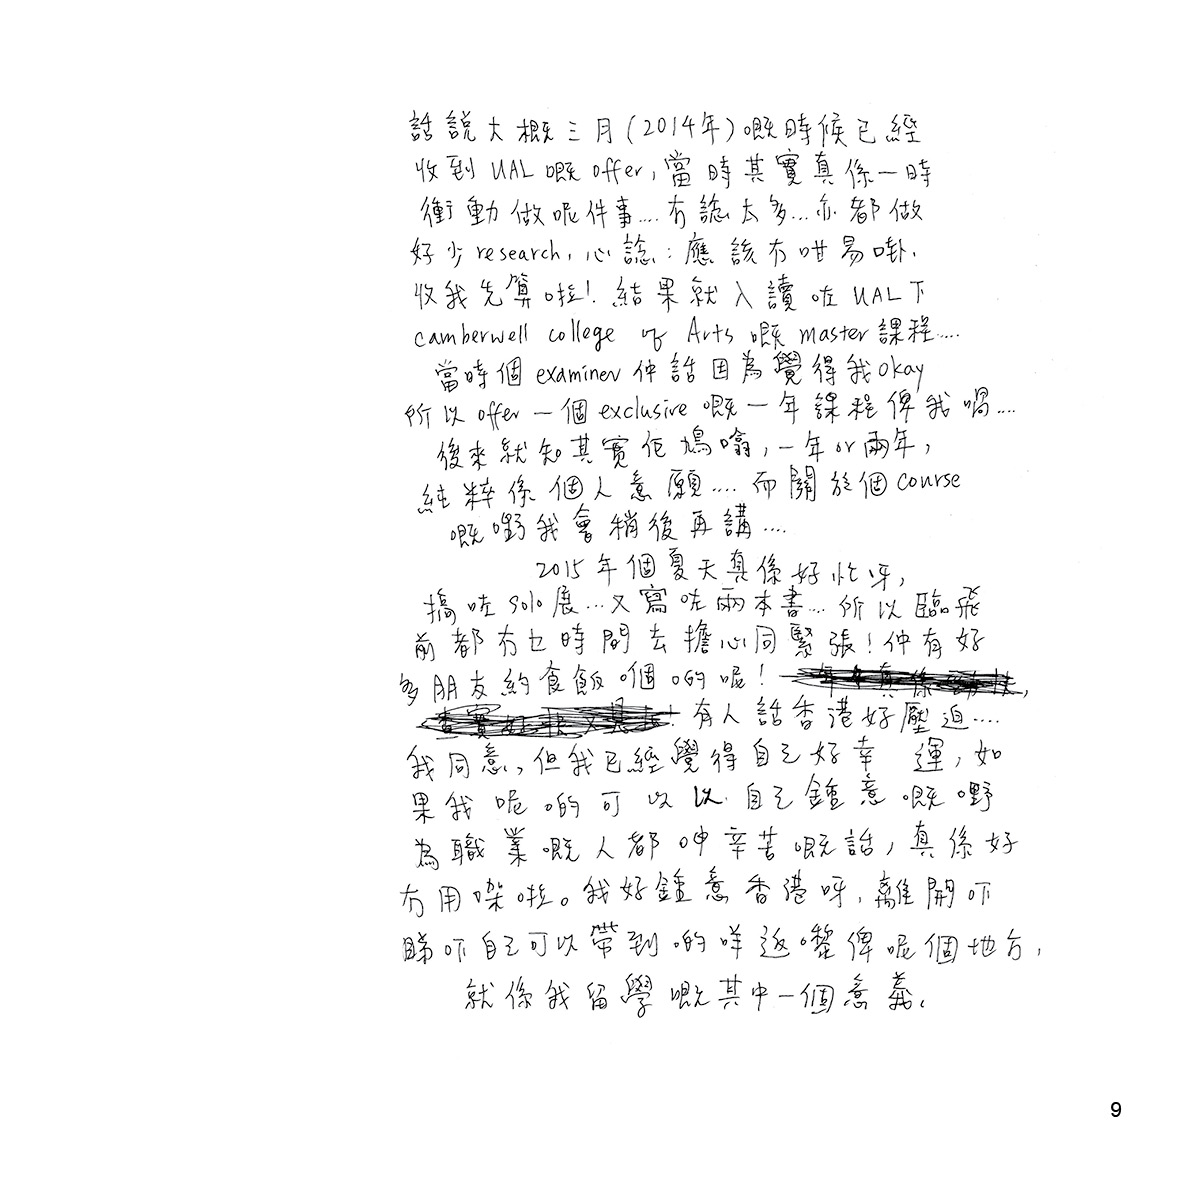 話說大概三月(2014年)嘅時候已經
收到UAL嘅offer,當時其實真係一時
衝動做呢件事....冇諗太多...亦都做
好少research,心諗:應該冇咁易啩,
收我先算啦!結果就入讀咗UAL下
camberwell college of Arts嘅master課程.....
當時個examiner仲話因為覺得我okay
所以offer一個exclusive嘅一年課程俾我喎....
後來就知其實佢鳩噏,一年or兩年,
純粹係個人意願....而關於個course
嘅嘢我會稍後再講....
2015年個夏天真係好忙呀,
搞咗solo展...又寫咗兩本書....所以臨飛
前都冇乜時間去擔心同緊張!仲有好
多朋友約食飯嗰啲呢!
有人話香港好壓迫....
我同意,但我已經覺得自己好幸運,如
果我呢啲可以以自己鍾意嘅嘢
為職業嘅人都呻辛苦嘅話,真係好
冇用㗎啦。我好鍾意香港呀,離開吓
睇吓自己可以帶到啲咩返嚟俾呢個地方,
就係我留學嘅其中一個意義.
9